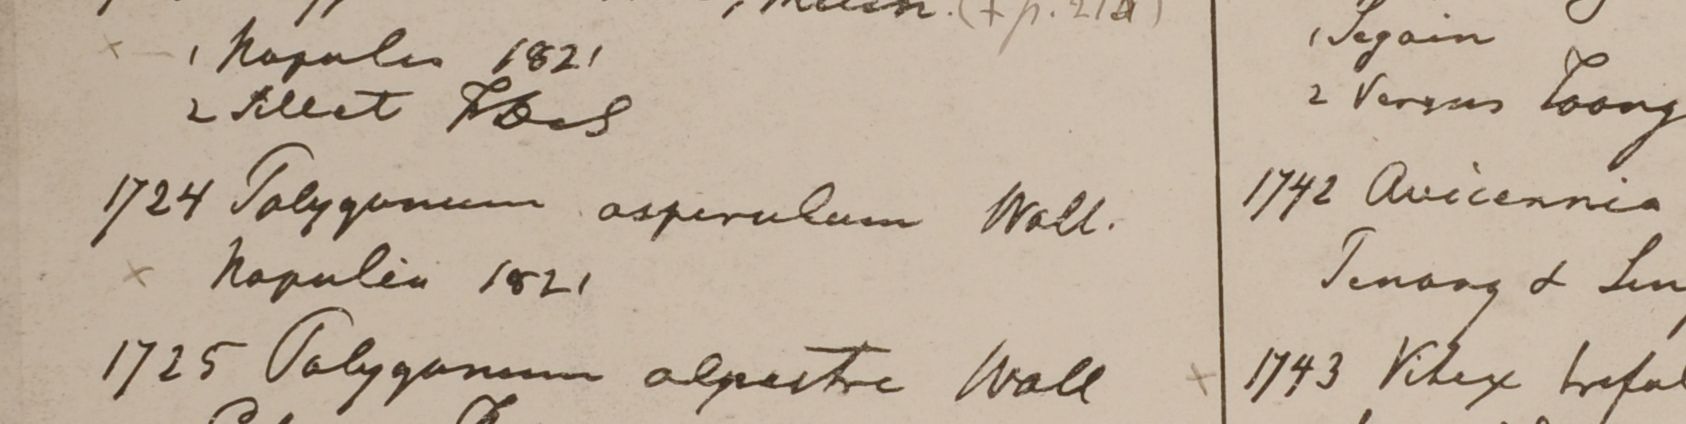 (+ p. 21a)
1 Napalia 1821
2 Sillet
1724 Polygonum asperulum Wall.
Napalia 1821
1725 Polygonum alpestre Wall
1 Segain
2 Versus Toong
1742 Avicennia
Penang &
1743 Vitex